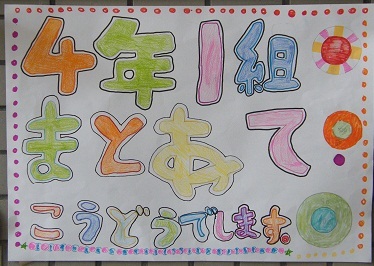 4年1組
まとあて
こうどうでします。